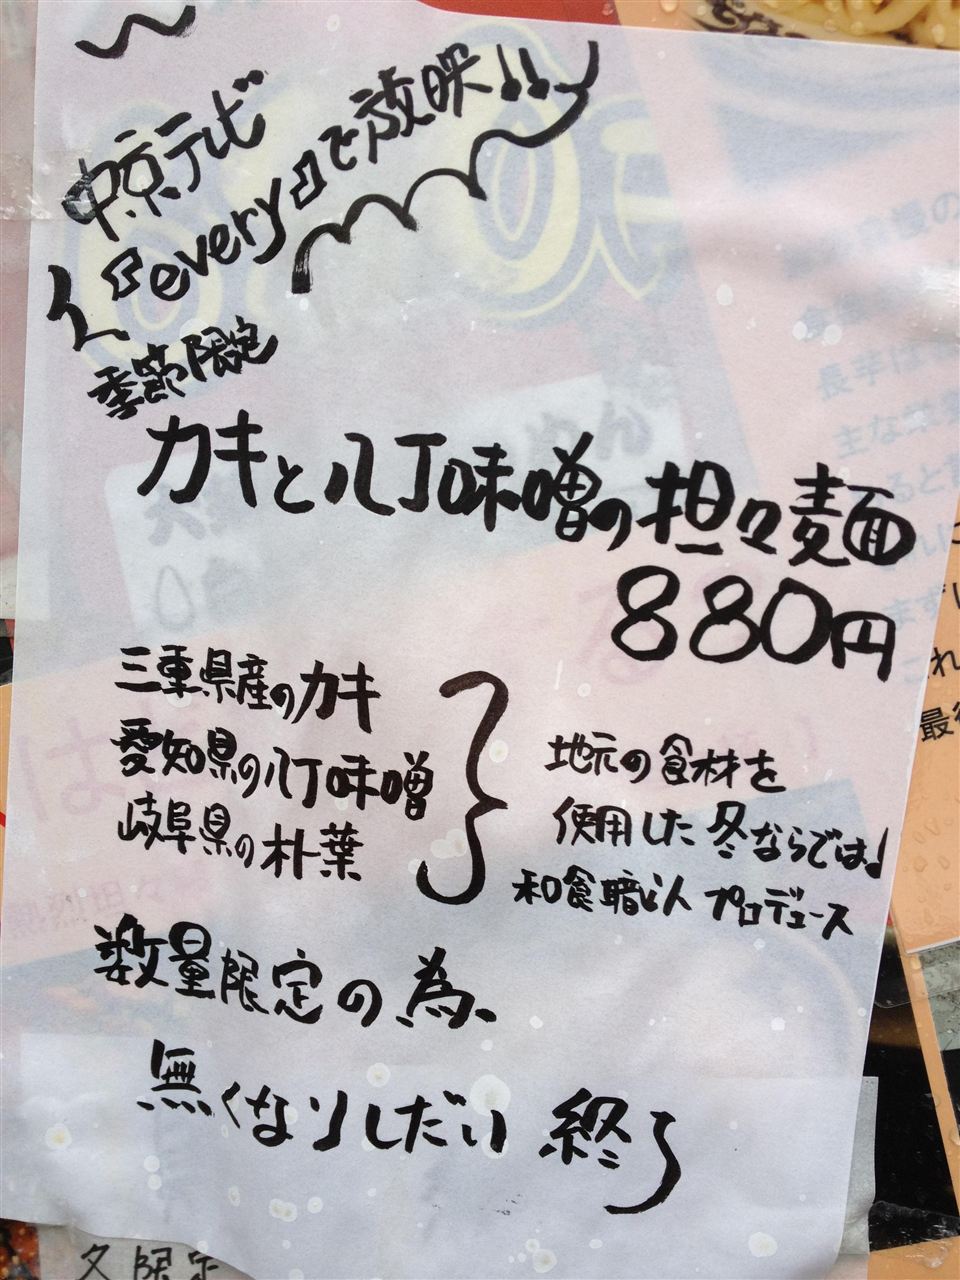 中京テレビ
『every』で放映!!
季節限定
カキと八丁味噌の担々麺
880円
三重県産のカキ
愛知県の八丁味噌
岐阜県の朴葉
地元の食材を
使用した冬ならでは♩
和食職人プロデュース
数量限定の為、
無くなりしだい終了